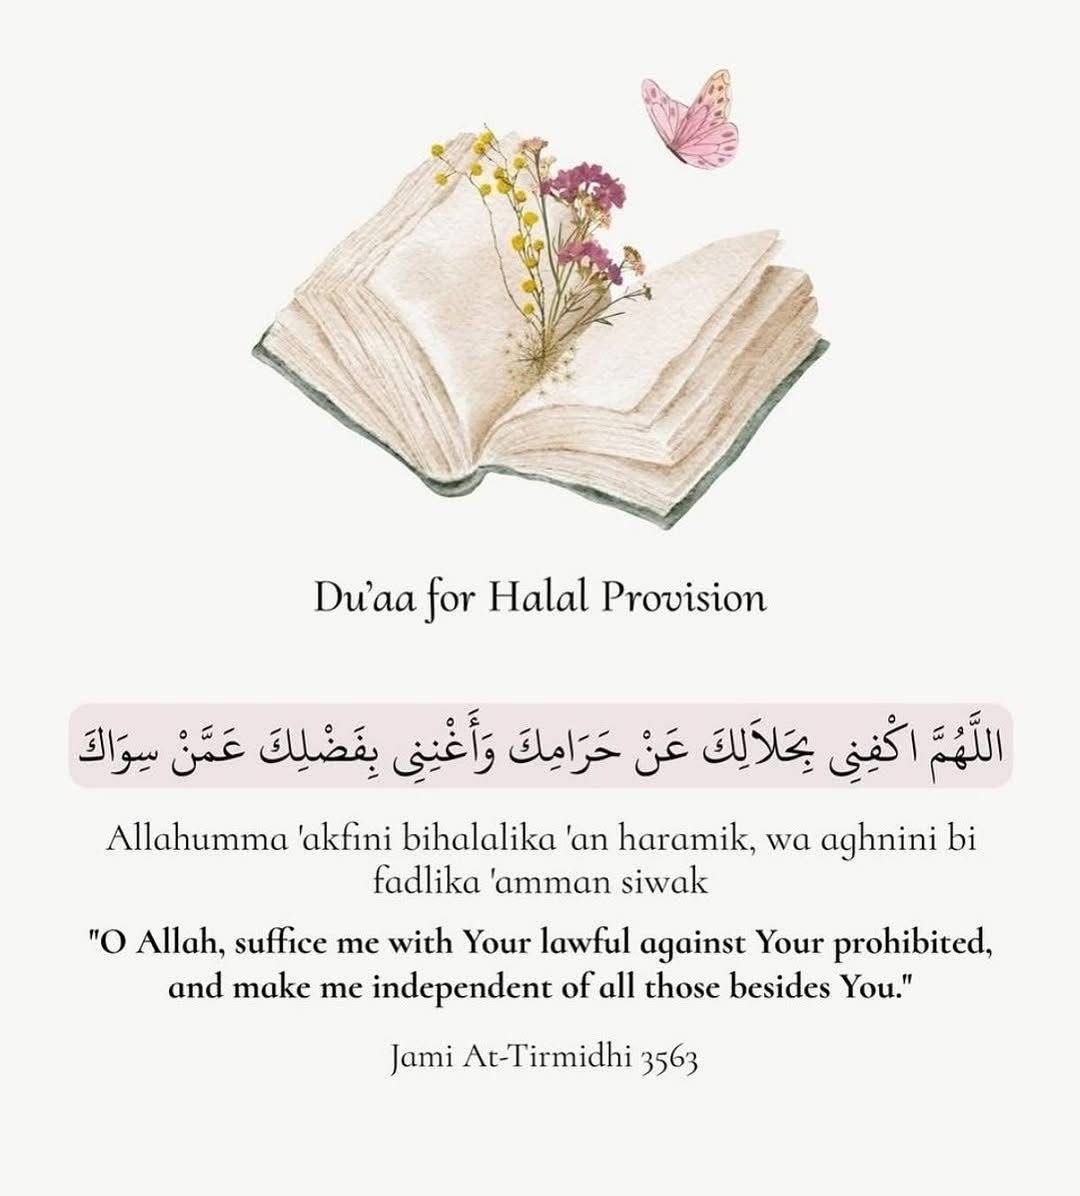 Du'aa for Halal Provision
اللَّهُمَّ اكْفِنِى بِحَلاَلِكَ عَنْ حَرَامِكَ وَأَغْنِنِى بِفَضْلِكَ عَمَّنْ سِوَاكَ
Allahumma 'akfini bihalalika 'an haramik, wa aghnini bi
fadlika 'amman siwak
"O Allah, suffice me with Your lawful against Your prohibited,
and make me independent of all those besides You."
Jami At-Tirmidhi 3563